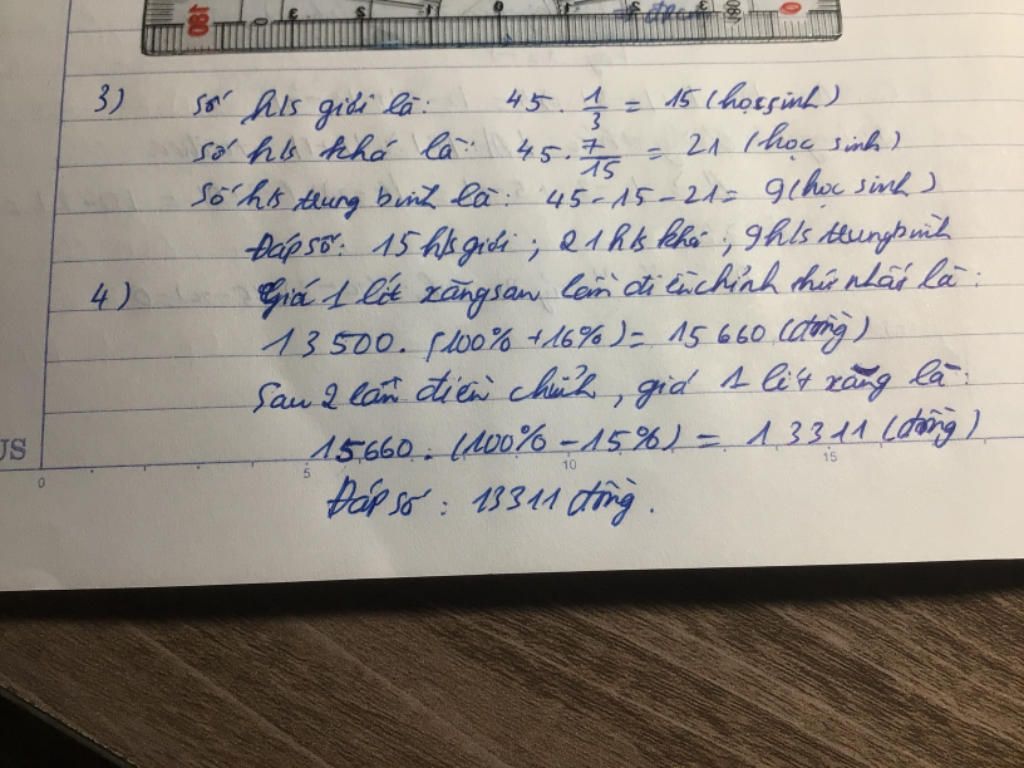 180 0 3 2 1 0 1 2 3 180 0
3) Số h/s giỏi là: 45 . 1/3 = 15 (học sinh)
Số h/s khá là: 45 . 7/15 = 21 (học sinh)
Số h/s trung bình là: 45 - 15 - 21 = 9 (học sinh)
Đáp số: 15 h/s giỏi ; 21 h/s khá ; 9 h/s trung bình
4) Giá 1 lít xăng sau lần điều chỉnh thứ nhất là:
13 500 . (100% + 16%) = 15 660 (đồng)
Sau 2 lần điều chỉnh, giá 1 lít xăng là:
15 660 . (100% - 15%) = 13311 (đồng)
US 0 5 10 15
Đáp số : 13311 đồng.